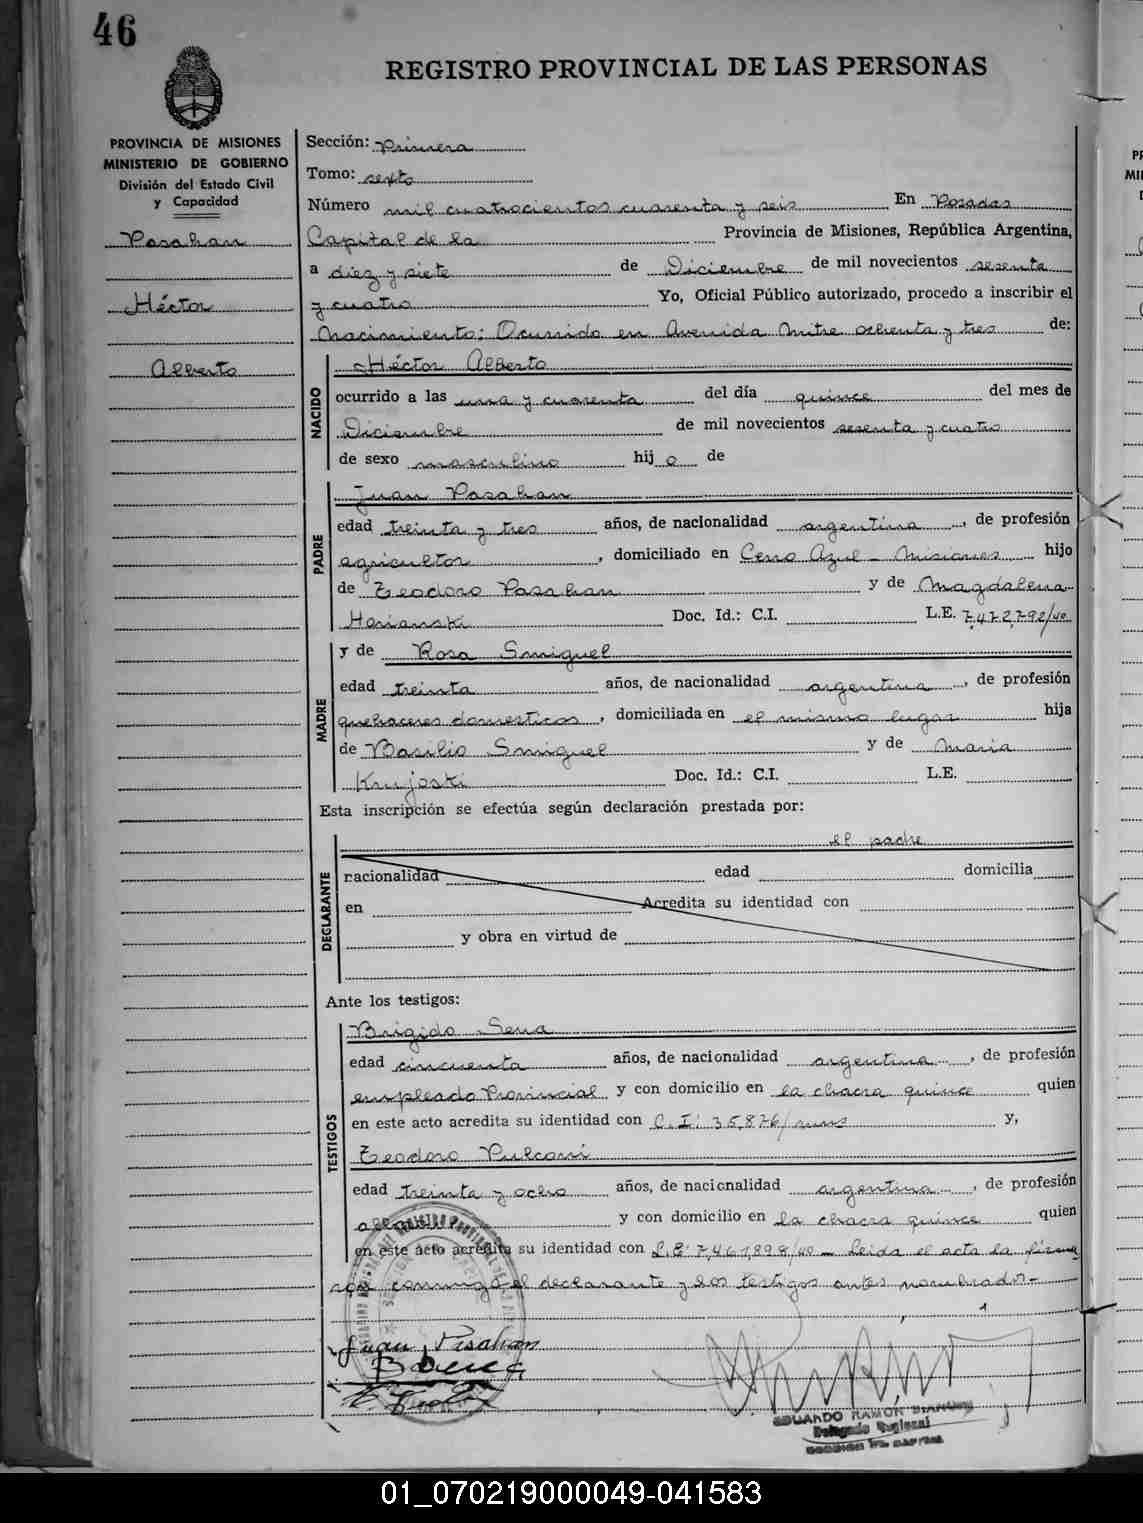 46
REGISTRO PROVINCIAL DE LAS PERSONAS
PROVINCIA DE MISIONES
MINISTERIO DE GOBIERNO
División del Estado Civil
y Capacidad
Pasahan
Héctor
Alberto
Sección: Primera
Tomo: sexto
Número mil cuatrocientos cuarenta y seis En Posadas
Capital de la Provincia de Misiones, República Argentina,
a diez y siete de Diciembre de mil novecientos sesenta
y cuatro Yo, Oficial Público autorizado, procedo a inscribir el
Nacimiento: Ocurrido en Avenida Mitre ochenta y tres de:
NACIDO
Héctor Alberto
ocurrido a las una y cuarenta del día quince del mes de
Diciembre de mil novecientos sesenta y cuatro
de sexo masculino hijo de
PADRE
Juan Pasahan
edad treinta y tres años, de nacionalidad argentina, de profesión
agricultor, domiciliado en Cerro Azul - Misiones hijo
de Teodoro Pasahan y de Magdalena
Horianski Doc. Id.: C.I. L.E. 7,472,792/40
MADRE
y de Rosa Smiguel
edad treinta años, de nacionalidad argentina, de profesión
quehaceres domesticos, domiciliada en el mismo lugar hija
de Basilio Smiguel y de Maria
Krujoski Doc. Id.: C.I. L.E.
Esta inscripción se efectúa según declaración prestada por:
DECLARANTE
el padre
nacionalidad edad domicilia
en Acredita su identidad con
y obra en virtud de
Ante los testigos:
TESTIGOS
Brigido Sena
edad cincuenta años, de nacionalidad argentina, de profesión
empleado Provincial y con domicilio en la chacra quince quien
en este acto acredita su identidad con C.I: 35,876/mns y,
Teodoro Pulcori
edad treinta y ocho años, de nacionalidad argentina, de profesión
y con domicilio en la chacra quince quien
en este acto acredita su identidad con L.E: 7,461,898/40 - Leida el acta la firma
con conmigo el declarante y los testigos antes nombrados-
Juan Pasahan
EDUARDO RAMON
Delegado Regional
01_070219000049-041583